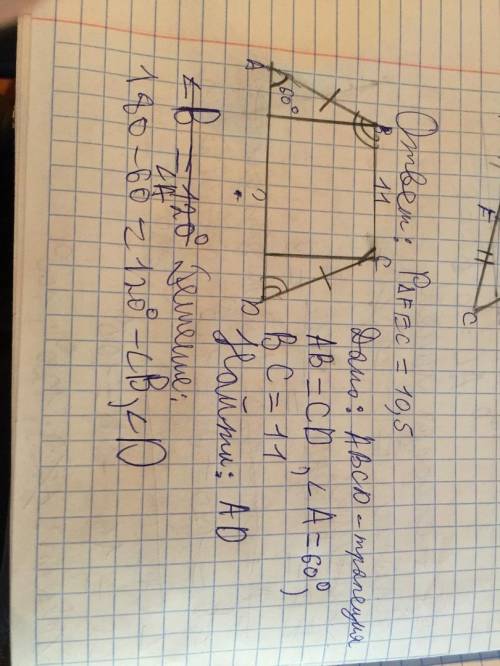 Ответ: P∆FEC = 10,5
Дано: ABCD - трапеция
AB = CD, ∠A = 60°,
BC = 11
Найти: AD
Решение:
∠B = 120°
∠A
180 - 60 = 120° - ∠B, ∠D
A
60°
B
11
C
D
E
C